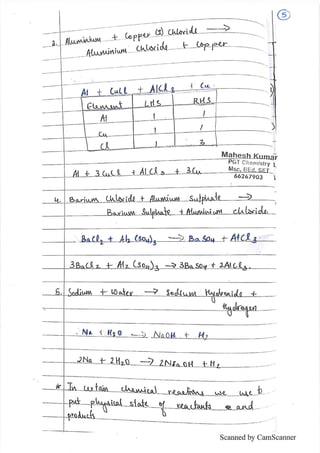 5
3. Aluminium + Copper (I) Chloride →
Aluminium Chloride + Copper
Al + CuCl + AlCl3 + Cu
Element LHS RHS
Al 1 1
Cu 1 1
Cl 1 3
Mahesh Kumar
PGT Chemistry
Msc, BEd, SET
66267903
Al + 3CuCl + AlCl3 + 3Cu
4. Barium Chloride + Alumium Sulphate →
Barium Sulphate + Aluminium chloride.
BaCl2 + Al2 (SO4)3 → BaSO4 + AlCl3
3BaCl2 + Al2 (SO4)3 → 3BaSO4 + 2AlCl3.
5. Sodium + Water → Sodium Hydroxide +
Hydrogen
Na + H2O → NaOH + H2
2Na + 2H2O → 2NaOH + H2
* In certain chemical reactions we use to
put physical state of reactants and
products
Scanned by CamScanner